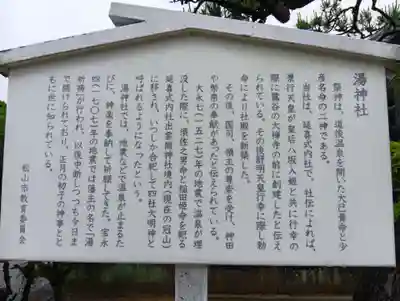 湯神社
祭神は、道後温泉を開いた大已貴命と少
彦名命の二神である。
当社は、延喜式内社で、社伝によれば、
景行天皇が皇后八坂入姫と共に行幸の
際に鷺谷の大禅寺の前に創建したと伝え
られている。その後舒明天皇行幸に際し勅
命により社殿を新築した。
その後、国司、領主の尊崇を受け、神田
や幣帛の奉献があったと伝えられている。
大永七(一五二七)年の地震で温泉が埋
没した際に、須佐之男命と稲田姫命を祀る
延喜式内社出雲岡神社境内(現在の冠山)
に移され、いつしか合祀して四社大明神と
呼ばれるようになったという。
湯神社では、地震などで温泉が止まるた
びに、神楽を奉納して祈願してきた。宝永
四(一七〇七)年の地震では藩主の名で「湯
祈祷」が行われ、以後中断しつつも今日ま
で続けられており、正月の初子の神事とと
もに世に知られている。
松山市教育委員会